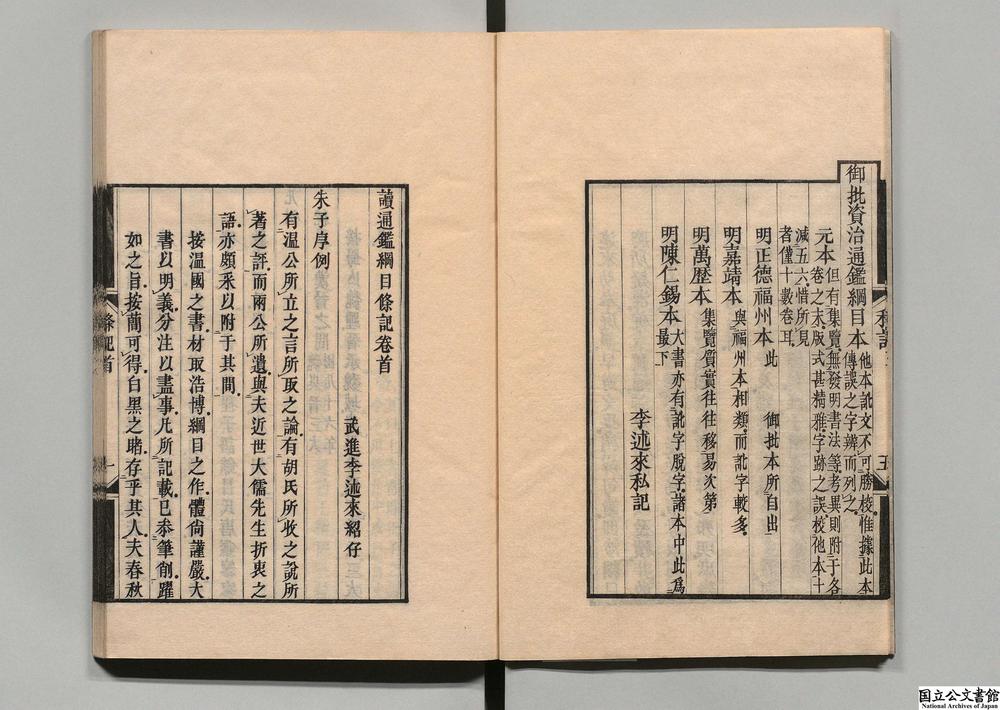 御批資治通鑑綱目本他本訛文不可勝校惟據此本
傳誤之字辨而列之
元本但有集覽無發明書法等考異則附于各
卷之末版式甚精雅字跡之誤校他本十
減五六惜所見
者僅十數卷耳
明正德福州本此 御批本所自出
明嘉靖本與福州本相類而訛字較多
明萬歷本集覽質實往往移易次第
明陳仁錫本大書亦有訛字脫字諸本中此爲
最下
李述來私記
讀通鑑綱目條記卷首
武進李述來紹仔
朱子序例
有溫公所立之言所取之論有胡氏所收之說所
著之評而兩公所遺與夫近世大儒先生折衷之
語亦頗采以附于其間
按溫國之書材取浩博綱目之作體尚謹嚴大
書以明義分注以盡事凡所記載已泰筆削躍
如之旨按簡可得白黑之睹存乎其人夫春秋
條記首
一
国立公文書館
National Archives of Japan